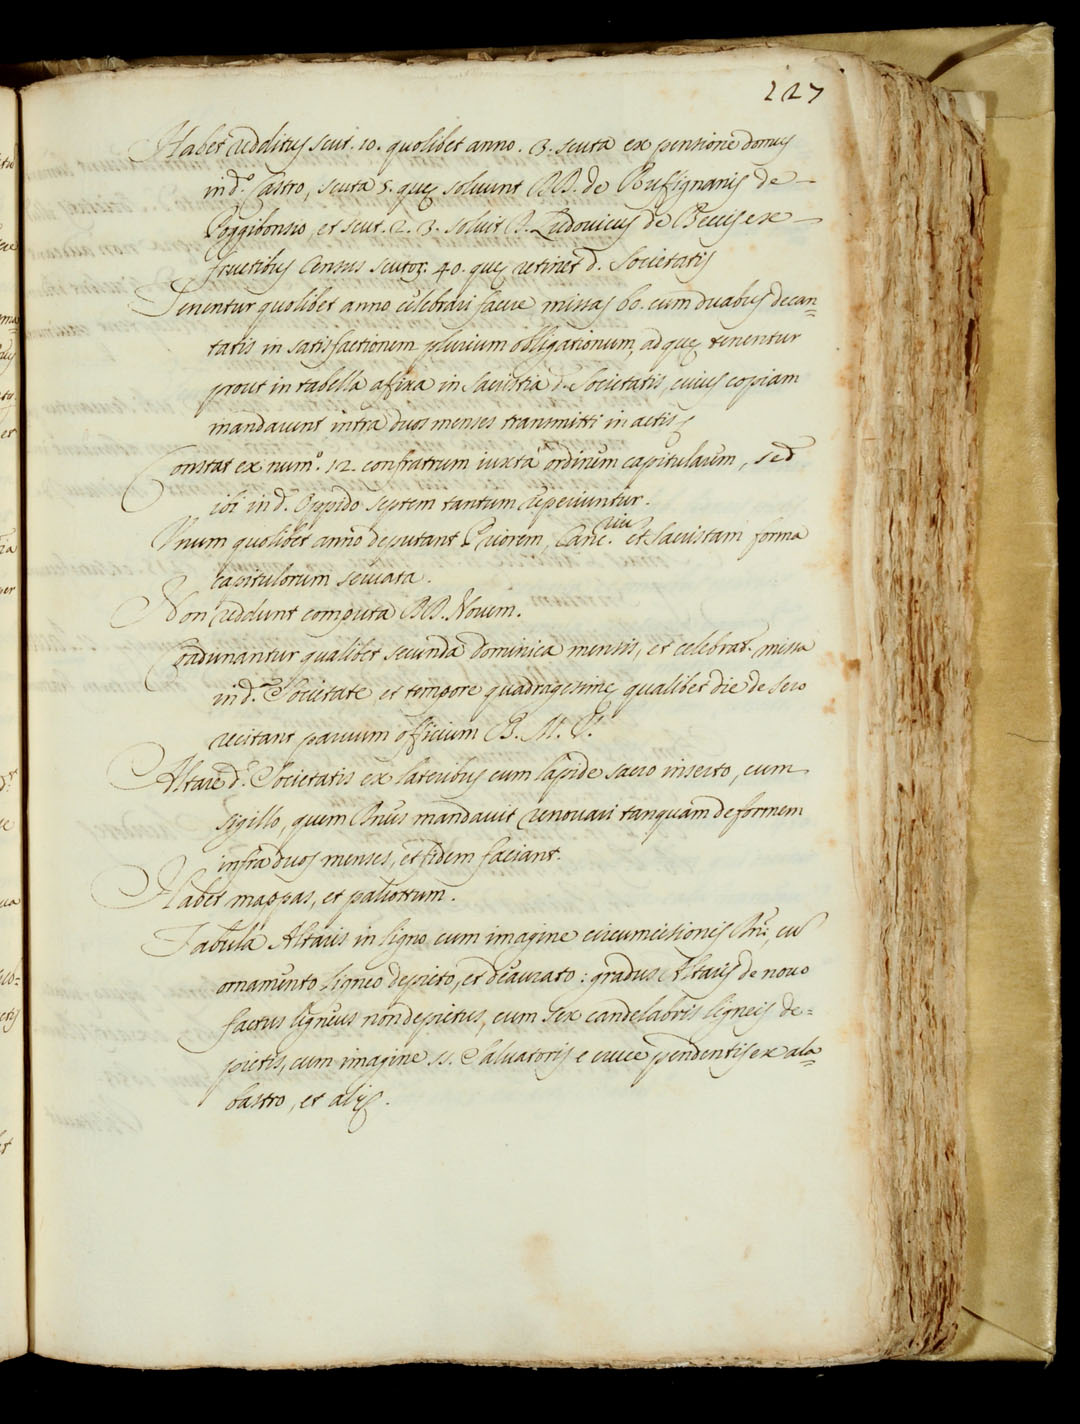 227
Habet redditus scut. 10. quolibet anno. 3. scuta ex pensione domus
in d.º Castro, scuta 5. quę soluunt DD. de Rufignanis de
Poggibonsio, et scut. 2. 3. soluit D. Ludouicus de Beccis ex
fructibus Census scutor: 40. quę retinet d. Societatis
Tenentur quolibet anno celebrari facere missas 60. cum duabus decan=
tatis in satisfactionem plurium obligationum, ad quę tenentur
prout in tabella afixa in Sacristia d. Societatis, cuius copiam
mandarunt intra duos menses transmitti in actis
Constat ex num.º 12. confratrum iuxta ordinem capitularem, sed
ibi in d. Oppido septem tantum reperiuntur.
Vnum quolibet anno deputant Priorem, Canc.riu et Sacristam forma
capitulorum seruata.
Non reddunt computa DD. Nouem.
Coadunantur qualibet secunda dominica mensis, et celebrat. missa
in d.ª Societate et tempore quadragesimę qualibet die de sero
recitant paruum officium B. M. V.
Altare d.ę Societatis ex lateribus cum lapide sacro inserto, cum
sigillo, quem Dnus mandauit renouari tanquam deformem
infra duos menses, et fidem faciant.
Habet mappas, et paliottum.
Tabula Altaris in ligno cum imagine circumcisionis Dni, cu
ornamento ligneo depicto, et deaurato: gradus Altaris de nouo
factus ligneus non depictus, cum sex candelabris ligneis de=
pictis, cum imagine ss. Saluatoris e cruce pendentis ex ala=
bastro, et alys.